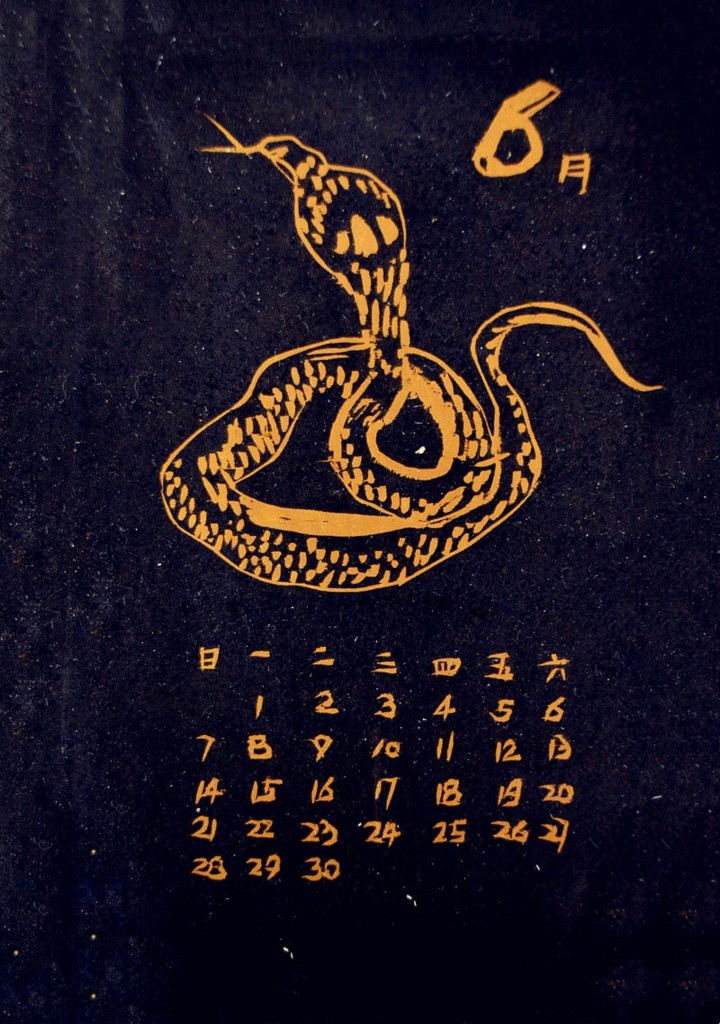 6月
日 一 二 三 四 五 六
1 2 3 4 5 6
7 8 9 10 11 12 13
14 15 16 17 18 19 20
21 22 23 24 25 26 27
28 29 30